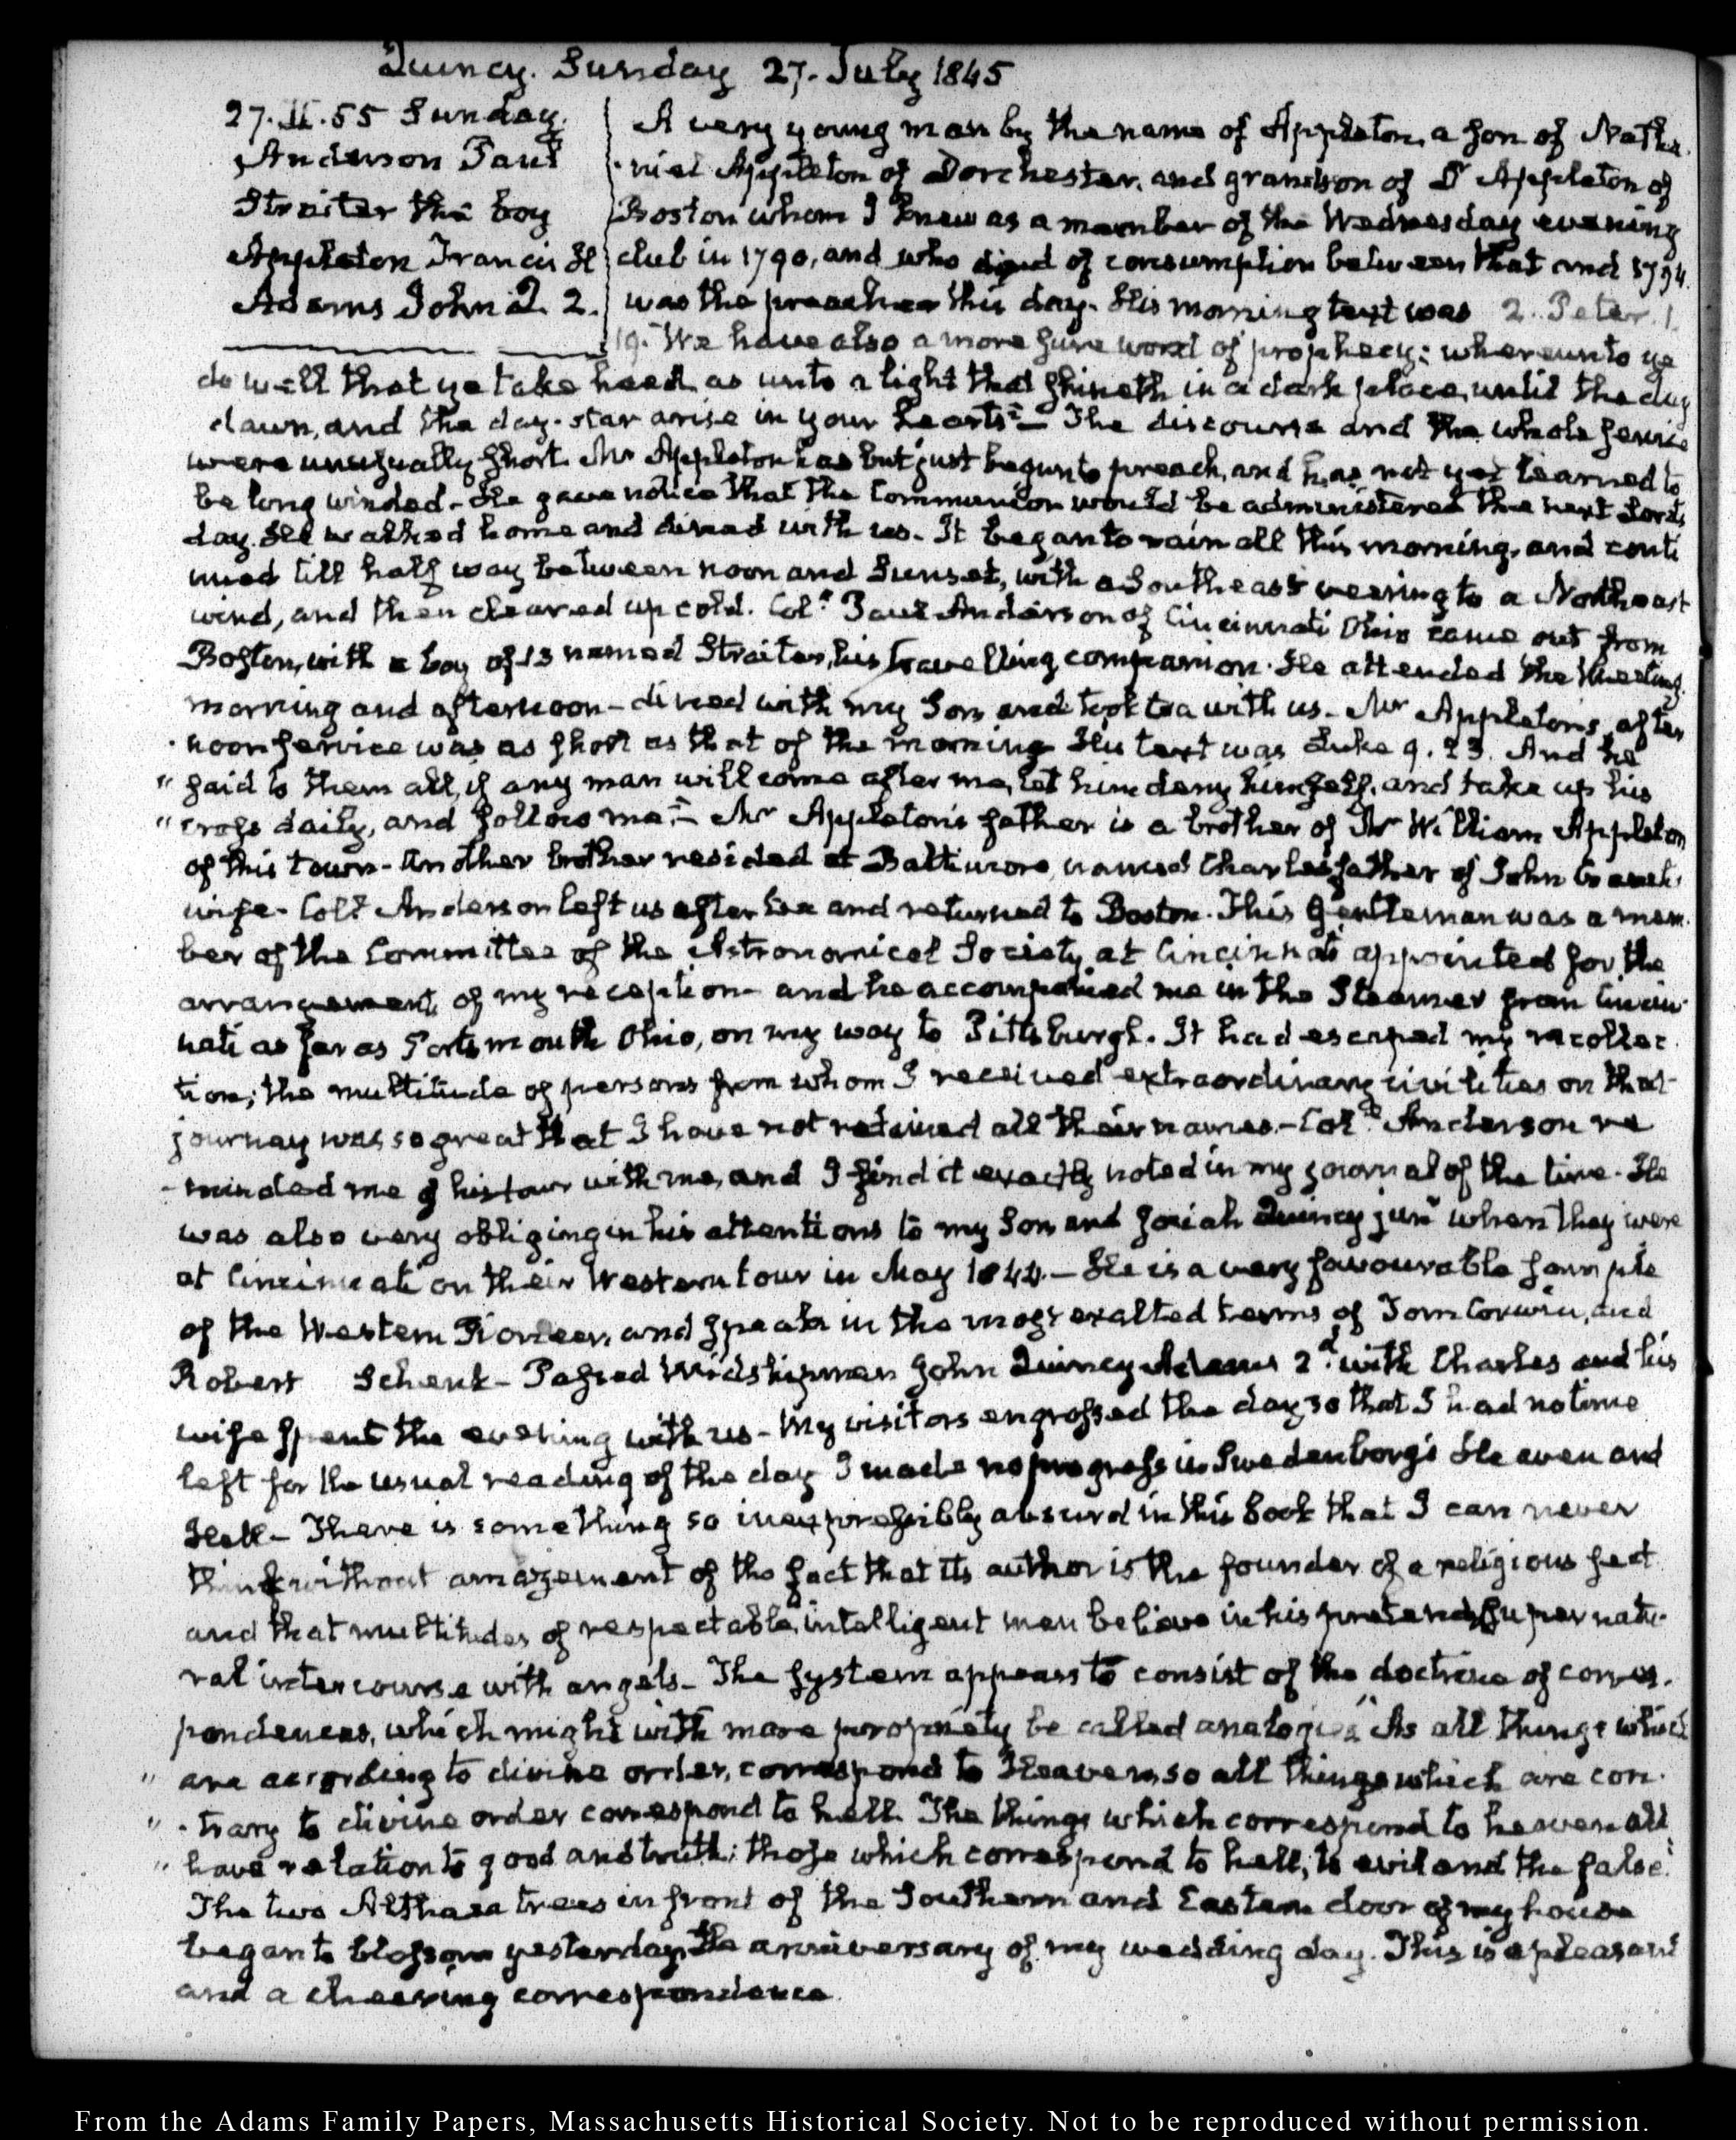 Quincy. Sunday 27. July 1845
27. IV. 55 Sunday.
Anderson Paul
Straiter the boy
Appleton Francis H
Adams John Q. 2.
A very young man by the name of Appleton, a son of Natha-
niel Appleton of Dorchester, and grandson of Dr Appleton of
Boston whom I knew as a member of the Wednesday evening
club in 1790, and who died of consumption between that and 1794.
was the preacher this day. His morning text was 2. Peter. 1.
19. "We have also a more sure word of prophecy; whereunto ye
do well that ye take heed, as unto a light that shineth in a dark place, until the day
dawn, and the day-star arise in your hearts" - The discourse and the whole service
were unusually short. Mr Appleton has but just begun to preach, and has not yet learned to
be long winded - He gave notice that the Communion would be administered the next Lord's
day. He walked home and dined with us. It began to rain all this morning, and conti
nued till half way between noon and Sunset, with a Southeast veering to a Northeast
wind, and then cleared up cold. Coll. Paul Anderson of Cincinnati Ohio came out from
Boston, with a boy of 13 named Straiter, his travelling companion. He attended the Meeting
morning and afternoon - dined with my Son and took tea with us. Mr Appleton's after
noon service was as short as that of the morning His text was Luke 9. 23. And he
" said to them all, if any man will come after me, let him deny himself, and take up his
" cross daily, and follow me." - Mr Appleton's father is a brother of Mr William Appleton
of this town - Another brother resided at Baltimore, named Charles father of John
wife. Coll. Anderson left us after tea and returned to Boston. This Gentleman was a mem-
ber of the Committee of the Astronomical Society at Cincinnati appointed for the
arrangement of my reception - and he accompanied me in the Steamer from Cincin-
nati as far as Portsmouth Ohio, on my way to Pittsburgh. It had escaped my recollec-
tion; the multitude of persons from whom I received extraordinary civilities on that
journey was so great that I have not retained all their names. - Coll. Anderson re
-minded me of his tour with me, and I find it exactly noted in my journal of the time. He
was also very obliging in his attentions to my Son and Josiah Quincy junr when they were
at Cincinnati on their Western tour in May 1844. - He is a very favourable sample
of the Western Pioneer, and speaks in the most exalted terms of Tom Corwin, and
Robert Schenk - Passed Midshipman John Quincy Adams 2d. with Charles and his
wife spent the evening with us - My visitors engrossed the day so that I had no time
left for the usual reading of the day I made no progress in Swedenborg's Heaven and
Hell - There is something so inexpressibly absurd in this book that I can never
think without amazement of the fact that its author is the founder of a religious sect
and that multitudes of respectable, intelligent men believe in his pretended supernatu-
ral intercourse with angels - The system appears to consist of the doctrine of corres-
pondences, which might with more propriety be called analogies "As all things which
" are according to divine order, correspond to Heaven, so all things which are con-
" -trary to divine order correspond to hell. The things which correspond to heaven all
" have relation to good and truth; those which correspond to hell, to evil and the false."
The two Althaea trees in front of the Southern and Eastern door of my house
began to blossom yesterday, the anniversary of my wedding day. This is a pleasant
and a cheering correspondence.
From the Adams Family Papers, Massachusetts Historical Society. Not to be reproduced without permission.